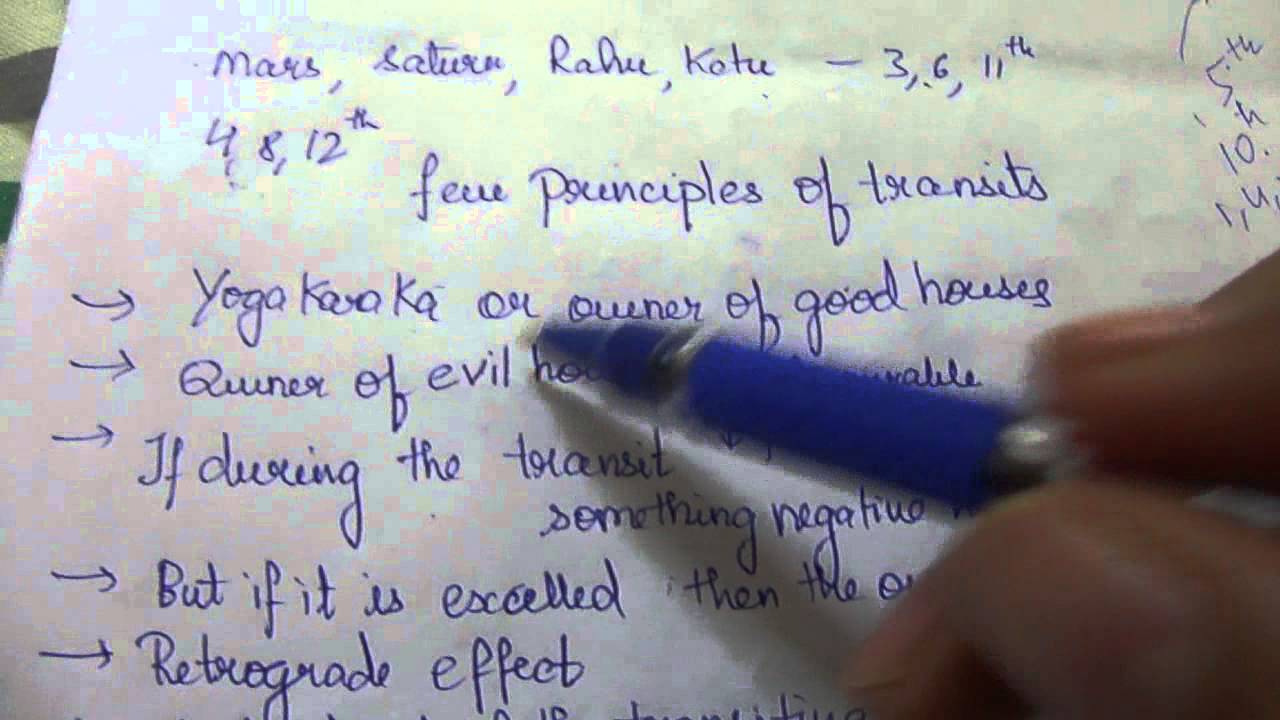 Mars, Saturn, Rahu, Ketu – 3, 6, 11th
4, 8, 12th
few principles of transits
→ Yogakaraka or owner of good houses
→ Owner of evil
→ If during the transit
something negative
→ But if it is excelled then the
→ Retrograde effect
transiting
5th
10th
1, 4,